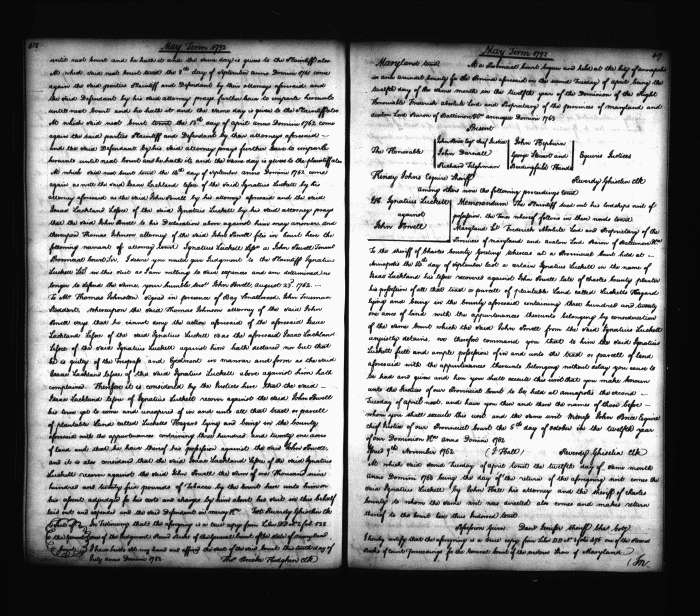 418
May Term 1792
until next Court and he hath it and the same day is given to the Plaintiff also
At which said next Court towit the 8th day of September anno Domini 1761 come
again the said parties Plaintiff and Defendant by their attorneys aforesaid and
the said Defendant by his said attorney prays further leave to imparle hereunto
until next Court and he hath it and the same day is given to the Plaintiff also
At which said next Court towit the 13th day of April anno Domini 1762 come
again the said parties Plaintiff and Defendant by their attorneys aforesaid
and the said Defendant by his said attorney prays further leave to imparle
hereunto until next Court and he hath it and the same day is given to the plaintiff also
At which said next Court towit the 14th day of September anno Domini 1762 come
again as well the said Isaac Lackland Lessee of the said Ignatius Luckett by his
attorney aforesaid as the said John Powell by his attorney aforesaid and the said
Isaac Lackland Lessee of the said Ignatius Luckett by his said attorney prays
that the said John Powell to his Declaration above against him may answer and
thereupon Thomas Johnson attorney of the said John Powell files in Court here the
following warrant of attorney towit Ignatius Luckett Lessee vs John Powell Tenant
Provincial Court Sir, I desire you would give Judgment to the Plaintiff Ignatius
Luckett in this suit as I am willing to save expences and am determined no
longer to defend the same, your humble servt John Powell, August 23d 1762
To Mr Thomas Johnston Signed in presence of Truman
Stoddert, whereupon the said Thomas Johnson attorney of the said John
Powell says that he cannot deny the action aforesaid of the aforesaid Isaac
Lackland Lessee of the said Ignatius Luckett as the aforesaid Isaac Lackland
Lessee of the said Ignatius Luckett against him hath declared nor but that
he is guilty of the trespass and Ejectment in manner and form as the said
Isaac Lackland Lessee of the said Ignatius Luckett above against him hath
complained Therefore it is considered by the Justices here that the said
Isaac Lackland Lessee of Ignatius Luckett recover against the said John Powell
his term yet to come and unexpired of in and unto all that tract or parcell
of plantable Land called Lucketts Hazard lying and being in the County
aforesaid with the appurtenances containing three hundred and twenty one acres
of land and that he have thereof his possession against the said John Powell,
and it is also considered that the said Isaac Lackland Lessee of the said Ignatius
Luckett recover against the said John Powell the sum of one Thousand nine
hundred and twenty five pounds of Tobacco by the Court here unto him on
his assent adjudged for his costs and charges by him about his suit in this behalf
laid out and expended and the said Defendant in mercy &c Test Reverdy Ghiselin Clk
In Testimony that the aforegoing is a true copy from Liber D D No 2 folio 528
I have hereto set my hand and affixed the seal of the said Court this tenth day of
July anno Domini 1792
Thos Brooke Hodgkin Clk
May Term 1792
419
Maryland towit At a Provincial Court begun and held at the City of Annapolis
in ann arundel County for the Province aforesaid on the second Tuesday of April being the
twelfth day of the same month in the twelfth year of the Dominion of the Right
Honourable Frederick absolute Lord and Proprietary of the provinces of maryland and
avalon Lord Baron of Baltimore &c annoque Domini 1763
Present
The Honorable
John Brice Esqr Chief Justice
John Darnall
Richard Tilghman
John Hepburn
George Steuart and
Beedingfield Hands
Esquires Justices
Kensey Johns Esquire Sheriff
Reverdy Ghiselin Clk
among others are the following proceedings towit
Ignatius Luckett
against
John Powell
Memorandum The Plaintiff sued out his landships writ of
possession, the Tenor whereof follows in these words towit
Maryland Sct Frederick Absolute Lord and Proprietary of the
Province of maryland and avalon Lord Baron of Baltimore &c
To the Sheriff of Charles County Greeting whereas at a Provincial Court held at
Annapolis the 14th day of September last a certain Ignatius Luckett in the name of
Isaac Lackland his Lessee recovered against John Powell late of Charles County planter
his possession of all that tract or parcell of plantable Land called Lucketts Hazard
lying and being in the County aforesaid containing three hundred and twenty
one acres of land with the appurtenances thereunto belonging by consideration
of the same Court which the said John Powell from the said Ignatius Luckett
unjustly detains, we therefore command you that to him the said Ignatius
Luckett full and ample possession of in and unto the tract or parcell of land
aforesaid with the appurtenances thereunto belonging without delay you cause to
be had and given and how you shall execute this writ that you make known
unto the Justices of our Provincial Court to be held at annapolis the second
Tuesday of april next, and have you then and there the names of them before
whom you shall execute this writ and the same writ Witness John Brice Esquire
chief Justice of our Provincial Court the 5th day of October in the twelfth year
of our Dominion &c anno Domini 1762
Issued 9th November 1762 (J Hall) Reverdy Ghiselin Clk
At which said second Tuesday of April towit the twelfth day of same month
anno Domini 1763 being the day of the return of the aforegoing writ comes the
said Ignatius Luckett by John Hall his attorney and the sheriff of charles
County to whom the same writ was directed also comes and makes return
thereof to the Court here thus Endorsed towit
Possession Given Danl Jenifer Sheriff Chas Coty
I hereby certify that the aforegoing is a true copy from Liber D D No 3 folio 496 one of the Record
Books of Court Proceedings for the General Court of the western Shore of Maryland